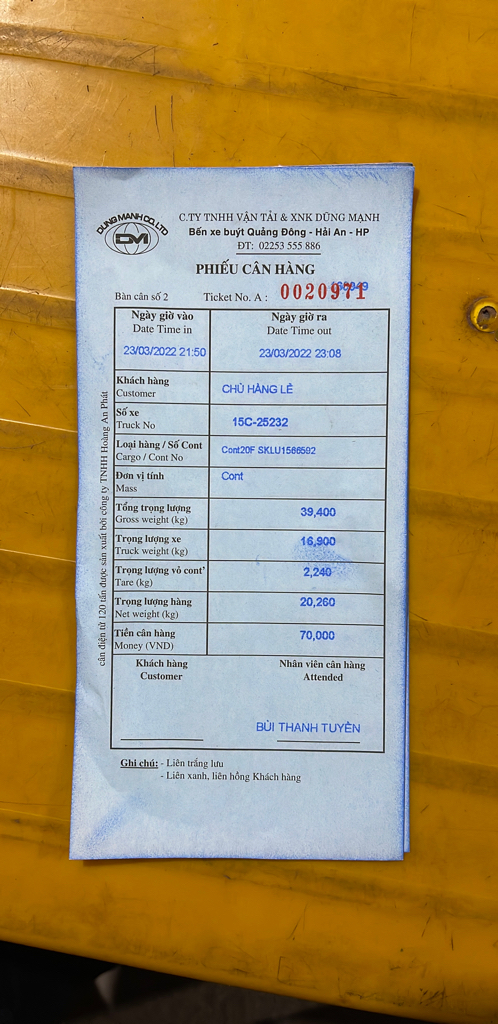 DUNG MANH CO., LTD
DM
C.TY TNHH VẬN TẢI & XNK DŨNG MẠNH
Bến xe buýt Quảng Đông - Hải An - HP
ĐT: 02253 555 886
PHIẾU CÂN HÀNG
Bàn cân số 2 Ticket No. A : 0020971
Ngày giờ vào Ngày giờ ra
Date Time in Date Time out
23/03/2022 21:50 23/03/2022 23:08
Khách hàng
Customer CHỦ HÀNG LẺ
Số xe
Truck No 15C-25232
Loại hàng / Số Cont
Cargo / Cont No Cont20F SKLU1566592
Đơn vị tính Cont
Mass
Tổng trọng lượng
Gross weight (kg) 39,400
Trọng lượng xe
Truck weight (kg) 16,900
Trọng lượng vỏ cont'
Tare (kg) 2,240
Trọng lượng hàng
Net weight (kg) 20,260
Tiền cân hàng
Money (VND) 70,000
Khách hàng Nhân viên cân hàng
Customer Attended
BÙI THANH TUYỀN
Ghi chú: - Liên trắng lưu
- Liên xanh, liên hồng Khách hàng
cân điện tử 120 tấn được sản xuất bởi công ty TNHH Hoàng An Phát